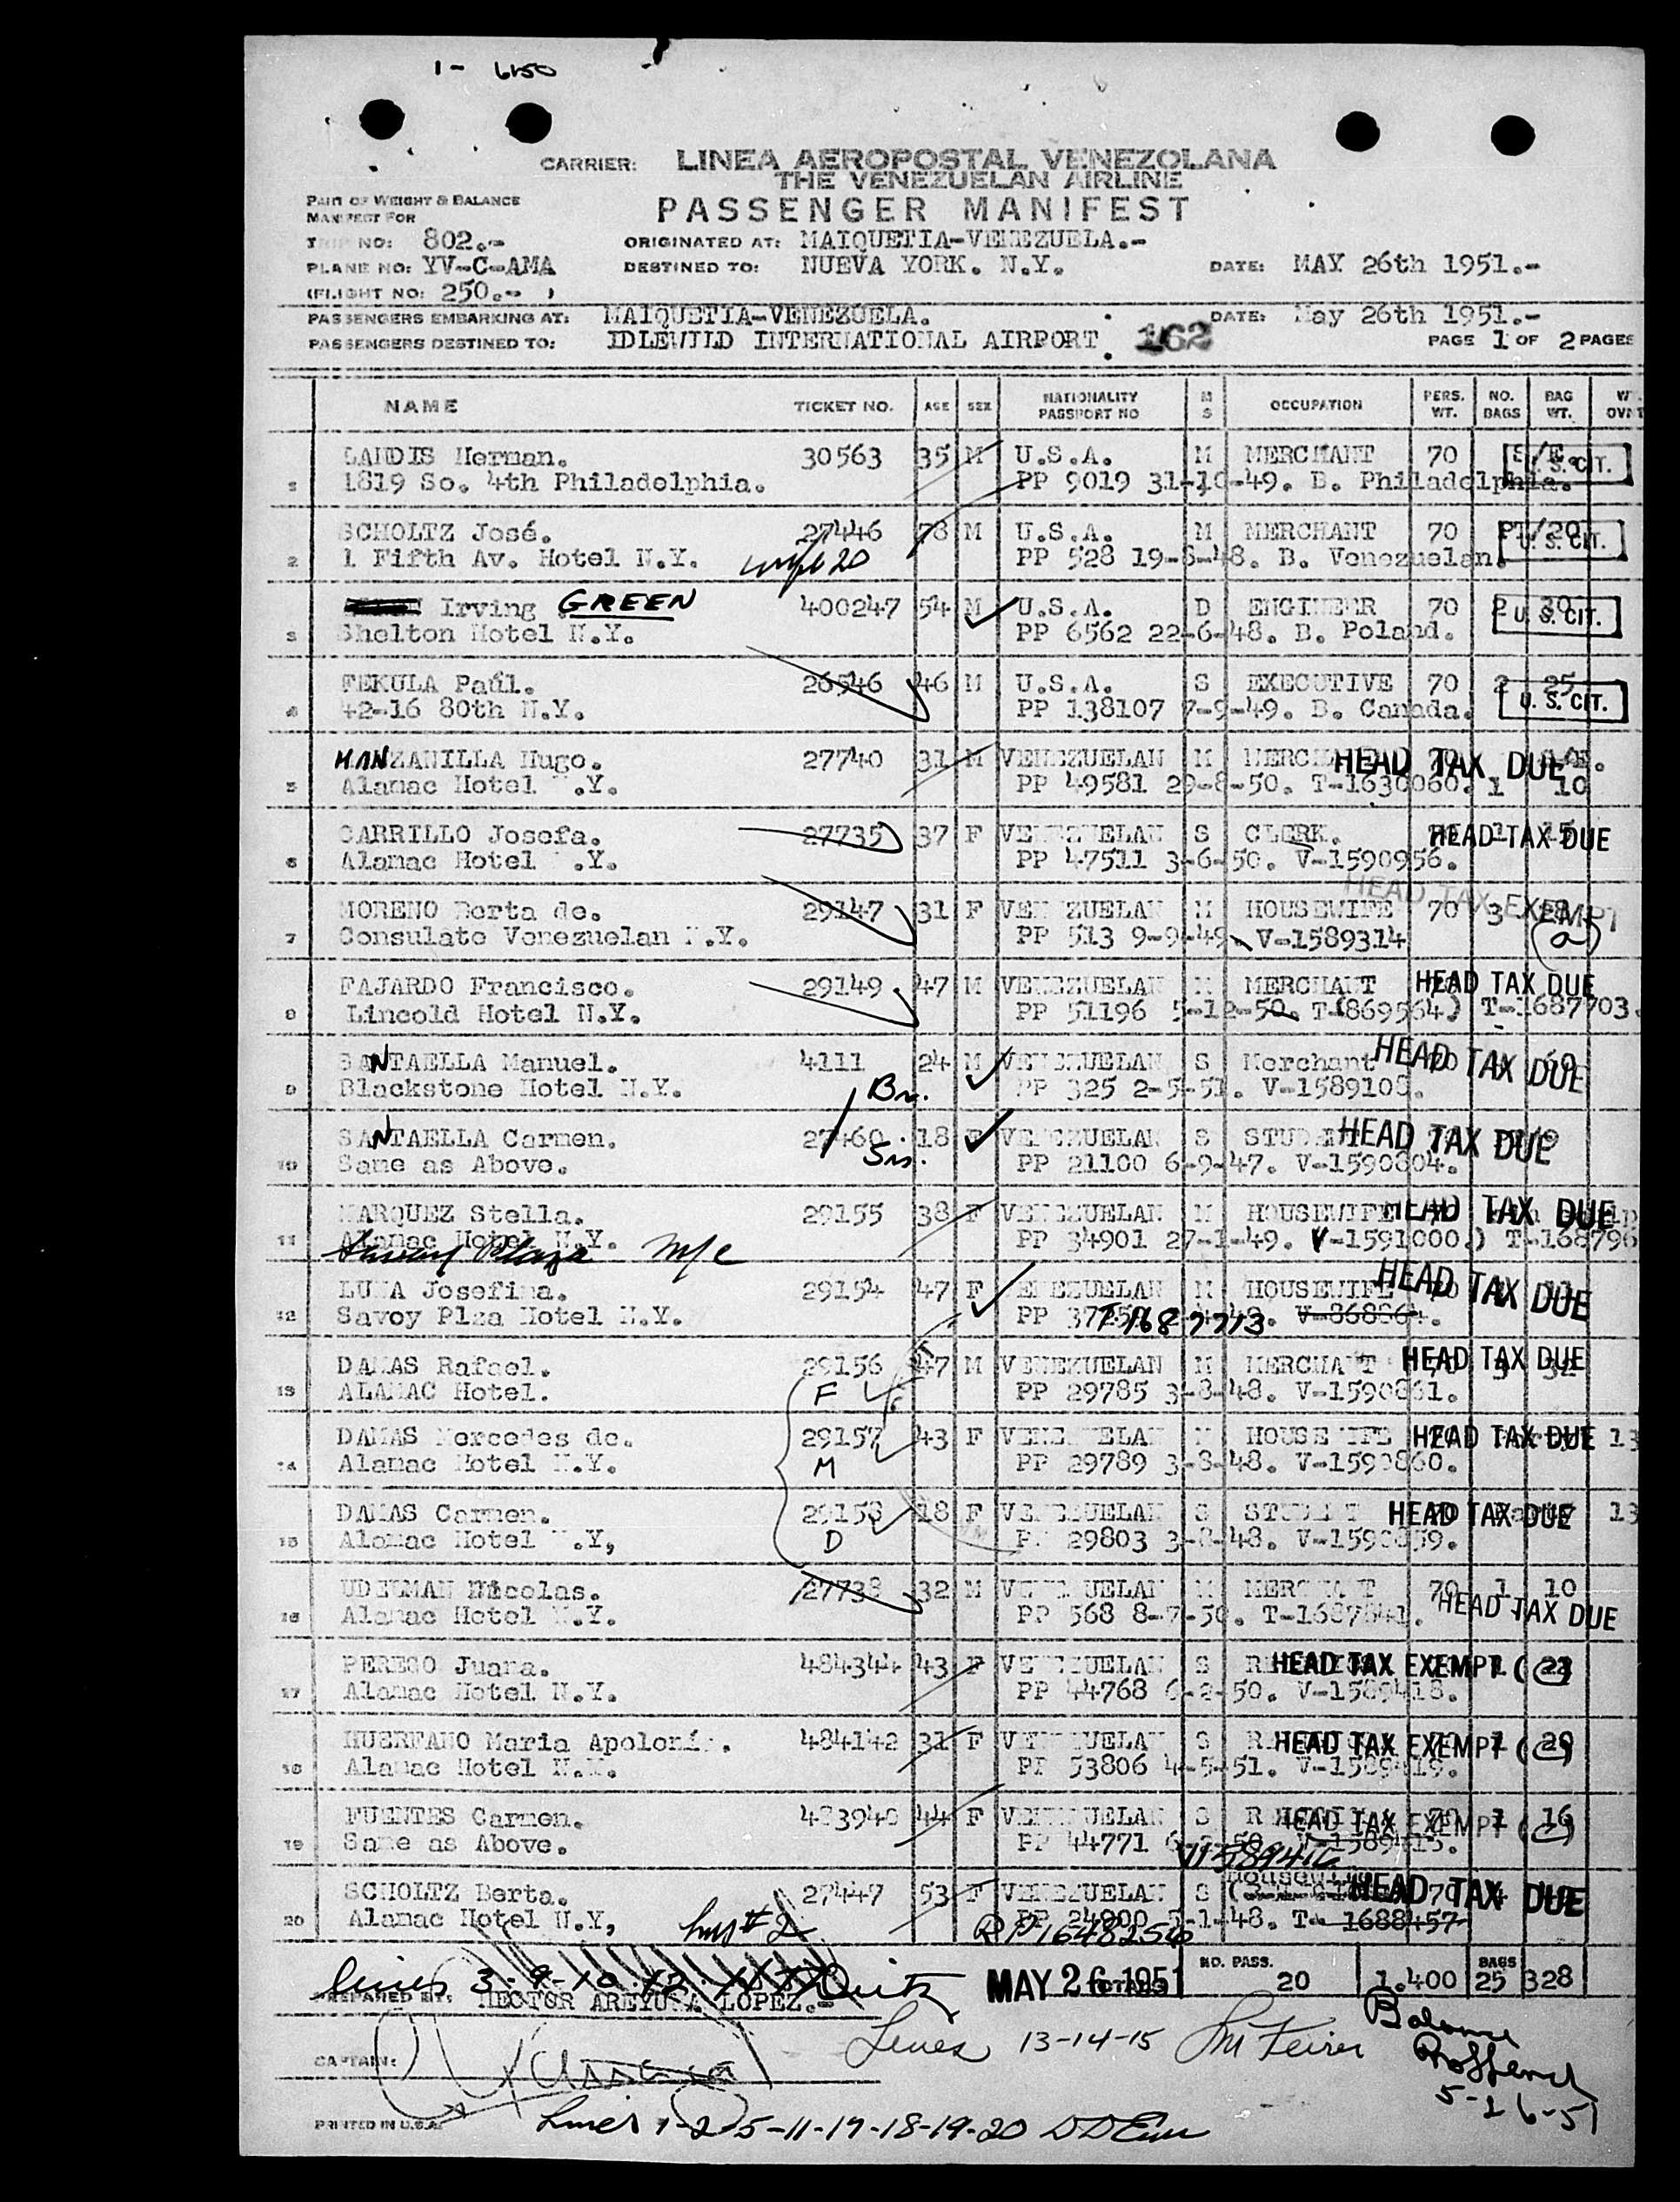 1- 6150
CARRIER: LINEA AEROPOSTAL VENEZOLANA
THE VENEZUELAN AIRLINE
PART OF WEIGHT & BALANCE
MANIFEST FOR
PASSENGER MANIFEST
TRIP NO: 802.- ORIGINATED AT: MAIQUETIA-VENEZUELA.-
PLANE NO: YV-C-AMA DESTINED TO: NUEVA YORK. N.Y. DATE: MAY 26th 1951.-
(FLIGHT NO: 250.- )
PASSENGERS EMBARKING AT: MAIQUETIA-VENEZUELA. DATE: May 26th 1951.-
PASSENGERS DESTINED TO: IDLEWILD INTERNATIONAL AIRPORT. 162 PAGE 1 OF 2 PAGES
NAME TICKET NO. AGE SEX NATIONALITY PASSPORT NO M S OCCUPATION PERS. WT. NO. BAGS BAG WT.
LANDIS Herman. 30563 35 M U.S.A. M MERCHANT 70 U. S. CIT.
1 1819 So. 4th Philadelphia. PP 9019 31-10-49. B. Philadelphia.
SCHOLTZ José. 27446 78 M U.S.A. M MERCHANT 70 PT/20 U. S. CIT.
2 1 Fifth Av. Hotel N.Y. wife 20 PP 528 19-8-48. B. Venezuelan.
Irving GREEN 400247 54 M U.S.A. D ENGINEER 70 2 30 U. S. CIT.
3 Shelton Hotel N.Y. PP 6562 22-6-48. B. Poland.
FEKULA Paúl. 26546 46 M U.S.A. S EXECUTIVE 70 2 25 U. S. CIT.
4 42-16 80th N.Y. PP 138107 7-9-49. B. Canada.
MANZANILLA Hugo. 27740 31 M VENEZUELAN M HEAD TAX DUE
5 Alamac Hotel .Y. PP 49581 29-8-50. T-1630060. 1 10
CARRILLO Josefa. 27735 37 F VENEZUELAN S CLERK. HEAD TAX DUE
6 Alamac Hotel .Y. PP 47511 3-6-50. V-1590956.
HEAD TAX EXEMPT
MORENO Berta de. 29147 31 F VENEZUELAN M HOUSEWIFE 70 3
7 Consulate Venezuelan N.Y. PP 513 9-9-49. V-1589314 (a)
FAJARDO Francisco. 29149 47 M VENEZUELAN M MERCHANT HEAD TAX DUE
8 Lincold Hotel N.Y. PP 51196 5-12-50. T-(869564.) T-1687703.
SANTAELLA Manuel. 4111 24 M VENEZUELAN S Merchant HEAD TAX DUE
9 Blackstone Hotel N.Y. Br. PP 325 2-5-51. V-1589108.
SANTAELLA Carmen. 27460 18 F VENEZUELAN S STUDENT HEAD TAX DUE
10 Same as Above. Sis. PP 21100 6-9-47. V-1590804.
MARQUEZ Stella. 29155 38 F VENEZUELAN M HOUSEWIFE HEAD TAX DUE
11 Alamac Hotel N.Y. PP 34901 27-1-49. V-1591000.) T-168796
Plaza
LUNA Josefina. 29154 47 F VENEZUELAN M HOUSEWIFE HEAD TAX DUE
12 Savoy Plza Hotel N.Y. T-1687713 V-868864.
DAMAS Rafael. 29156 47 M VENEZUELAN M MERCHANT HEAD TAX DUE
13 ALAMAC Hotel. F PP 29785 3-8-48. V-1590861.
DAMAS Mercedes de. 29157 43 F VENEZUELAN M HOUSEWIFE HEAD TAX DUE 13
14 Alamac Hotel N.Y. M PP 29789 3-8-48. V-1590860.
DAMAS Carmen. 29158 18 F VENEZUELAN S STUDENT HEAD TAX DUE 13
15 Alamac Hotel .Y, D PP 29803 3-8-48. V-1590859.
UDELMAN Nicolas. 27738 32 M VENEZUELAN M MERCHANT 70 1 10
16 Alamac Hotel N.Y. PP 568 8-7-50. HEAD TAX DUE
PEREGO Juana. 484344 43 F VENEZUELAN S HEAD TAX EXEMPT (c)
17 Alamac Hotel N.Y. PP 44768 6-2-50. V-1589418.
HUERFANO Maria Apoloní . 484142 31 F VENEZUELAN S HEAD TAX EXEMPT (c)
18 Alamac Hotel N.Y. PP 53806 4-5-51. V-1589419.
FUENTES Carmen. 483940 44 F VENEZUELAN S HEAD TAX EXEMPT 1 16 (c)
19 Same as Above. PP 44771 6-2-50. V-1589415.
V1589416
Housewife
SCHOLTZ Berta. 27447 53 F VENEZUELAN S HEAD TAX DUE
20 Alamac Hotel N.Y, hus # 2 PP 24900 -1-48. T- 1688457
RP1648256
Lines 3-9-10-12 MAY 26 1951 NO. PASS. 20 1.400 BAGS 25 328
PREPARED BY: HECTOR AREYUNA LOPEZ.-
Lines 13-14-15
Balance
5-26-51
CAPTAIN:
PRINTED IN U.S.A. Lines 1-2-5-11-17-18-19-20